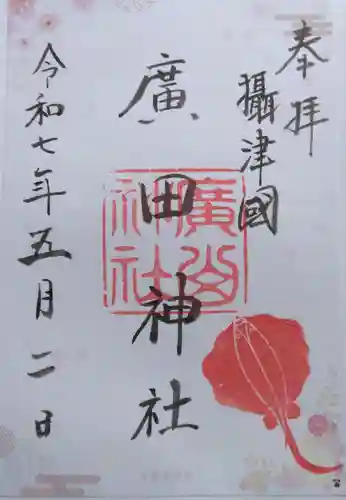 奉拝
攝津國
廣田神社
令和七年五月二日